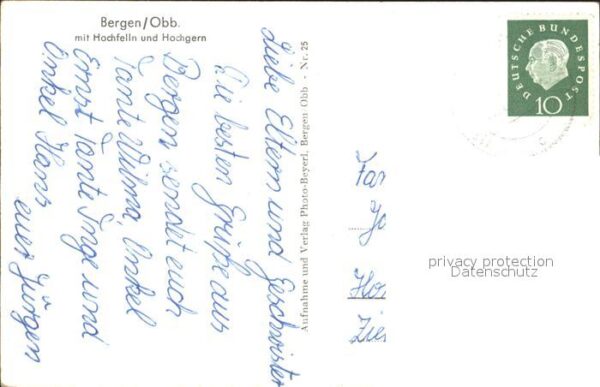 Bergen/Obb.
mit Hochfelln und Hochgern
Liebe Eltern und Geschwister
Die besten Grüße aus
Bergen sendet euch
Tante Wilma, Onkel
Ernst Tante Inge und
Onkel Hans
euer Jürgen
Aufnahme und Verlag Photo-Beyerl, Bergen Obb - Nr. 25
DEUTSCHE BUNDESPOST
10
Fam
Jo
Hor
Zie
privacy protection
Datenschutz